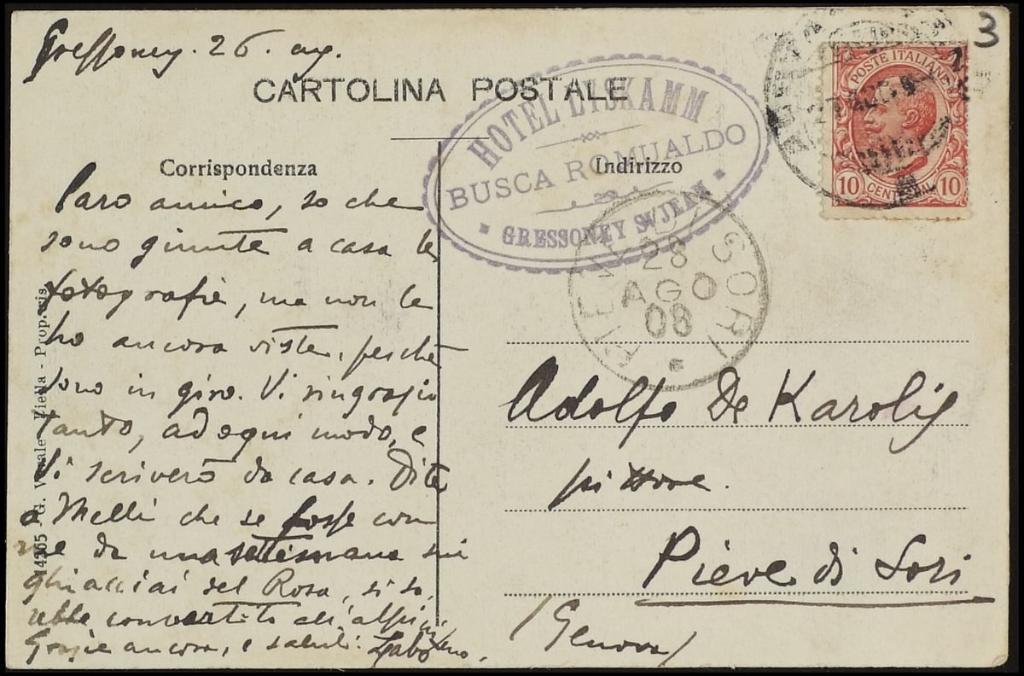 Gressoney. 26. ag.
3
CARTOLINA POSTALE
HOTEL LYSKAMM
BUSCA ROMUALDO
GRESSONEY S/JEAN
POSTE ITALIANE
10 CENT 10
Corrispondenza
Indirizzo
PIEVE DI SORI
28
AGO
08
Caro amico, so che
sono giunte a casa le
fotografie, ma non le
ho ancora viste, perchè
sono in giro. Vi ringrazio
tanto, ad ogni modo, e
Vi scriverò da casa. Dite
a Melli che se fosse con
me da una settimana sui
ghiacciai del Rosa, si sa,
rebbe convertito all'alpinismo.
Grazie ancora, e saluti.
Adolfo De Karolis
pittore.
Pieve di Sori
(Genova)
14565 G. Vitale - Biella - Propr. ris.